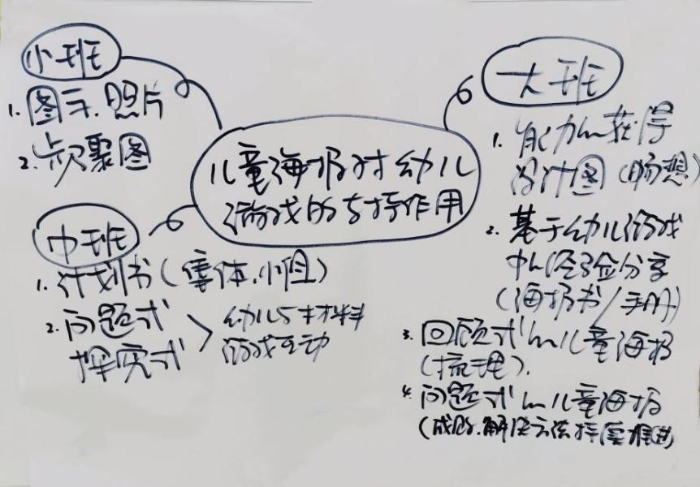 小班
1. 图示.照片
2. 点聚图
儿童海报对幼儿
游戏的支持作用
中班
1. 计划书(集体.小组)
2. 问题式
探究式
幼儿与材料
游戏互动
大班
1.
设计图(畅想)
2. 基于幼儿游戏
中心经验分享
(海报书/手册)
3. 回顾式 儿童海报
(梳理).
4. 问题式 儿童海报
(成败.解决方法